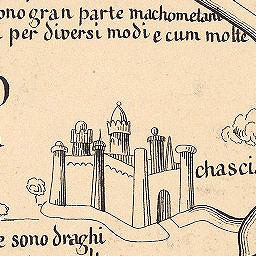 ono gran parte machometani
i per diversi modi e cum molte
chasci
e sono draghi